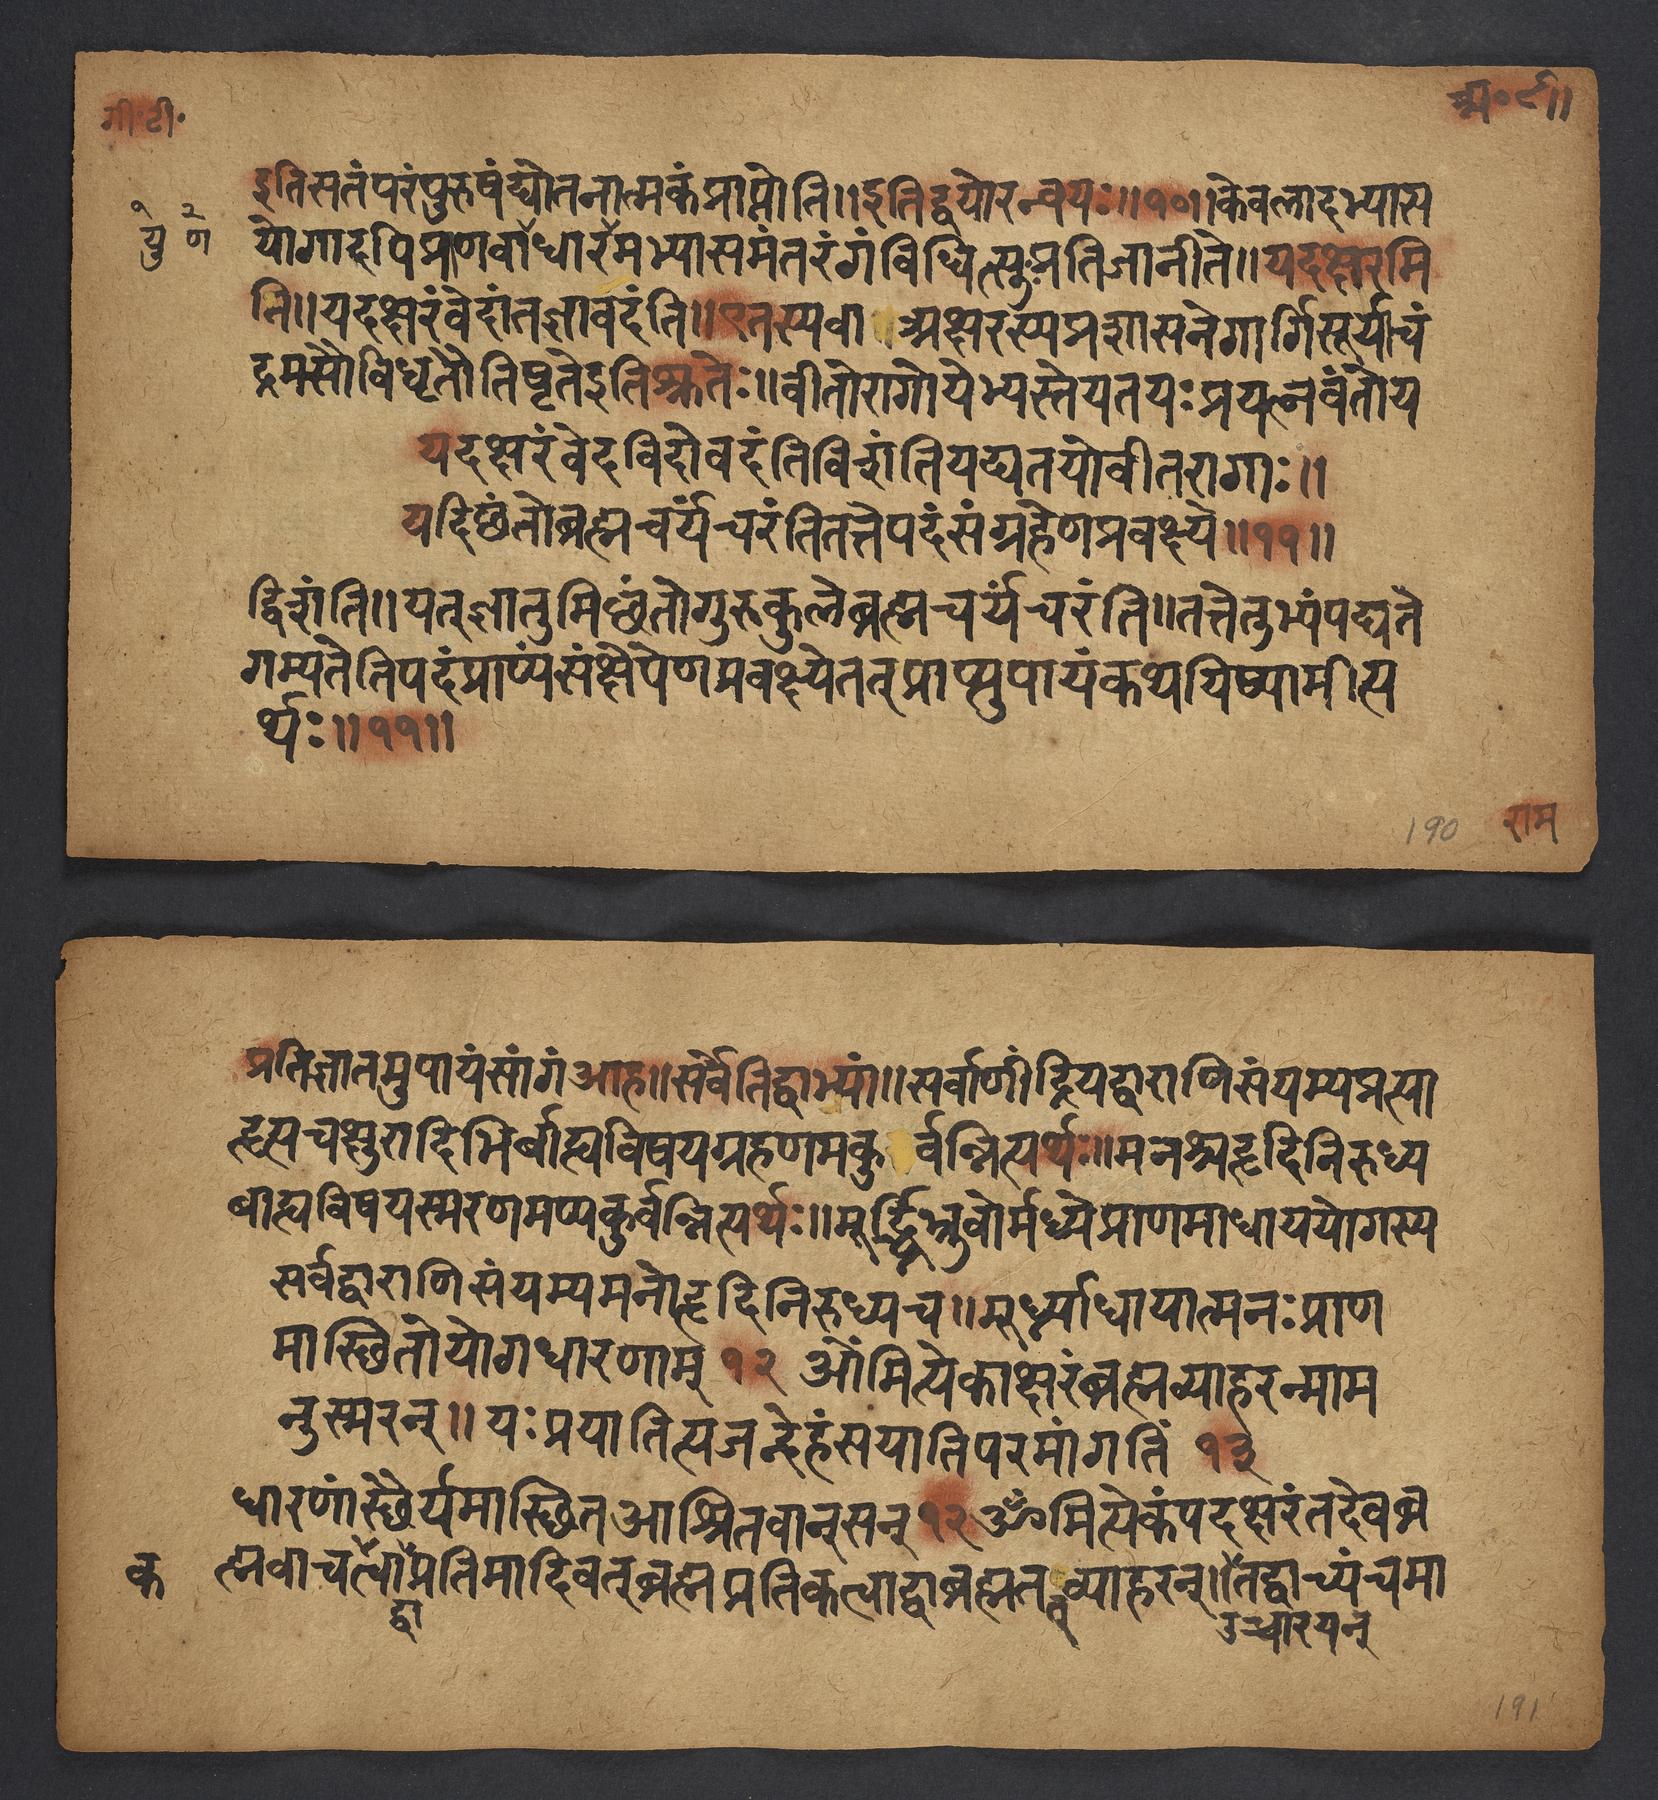 गी॰टी॰
अ॰८॥
इतिसतंपरंपुरुषंद्योतनात्मकंप्राप्नोति॥इतिद्वयोरन्वयः॥१०॥केवलादभ्यास
१ २
यु ण
योगादपिप्रणवाधारमभ्यासमंतरंगंविधित्सुःप्रतिजानीते॥यदक्षरमि
ति॥यदक्षरंवेदांतज्ञावदंति॥एतस्यवा अक्षरस्यप्रशासनेगार्गिसूर्याचं
द्रमसौविधृतौतिष्ठतेइतिश्रुतेः॥वीतोरागोयेभ्यस्तेयतयःप्रयत्नवंतोय
यदक्षरंवेदविदोवदंतिविशंतियद्यतयोवीतरागाः॥
यदिछंतोब्रह्मचर्यंचरंतितत्तेपदंसंग्रहेणप्रवक्ष्ये॥११॥
द्विशंति॥यत्ज्ञातुमिछंतोगुरुकुलेब्रह्मचर्यंचरंति॥तत्तेतुभ्यंपद्यते
गम्यतेतिपदंप्राप्यंसंक्षेपेणप्रवक्ष्येतत्प्राप्त्युपायंकथयिष्यामीत्य
र्थः॥११॥
190
राम
प्रतिज्ञातमुपायंसांगंआह॥सर्वेतिद्वाभ्यां॥सर्वाणींद्रियद्वाराणिसंयम्यप्रत्या
हृत्यचक्षुरादिभिर्बाह्यविषयग्रहणमकुर्वन्नित्यर्थः॥मनश्चहृदिनिरुध्य
बाह्यविषयस्मरणमप्यकुर्वन्नित्यर्थः॥मूर्द्ध्निभ्रुवोर्मध्येप्राणमाधाययोगस्य
सर्वद्वाराणिसंयम्यमनोहृदिनिरुध्यच॥मूर्ध्न्याधायात्मनःप्राण
मास्थितोयोगधारणाम् १२ ओंमित्येकाक्षरंब्रह्मव्याहरन्माम
नुस्मरन्॥यःप्रयातित्यजन्देहंसयातिपरमांगतिं १३
धारणांस्थैर्यमास्थितआश्रितवान्सन् १२ ॐमित्येकंपदक्षरंतदेवब्र
क
ह्मवाचत्वाप्रतिमादिवत्ब्रह्मप्रतिकत्वाद्वाब्रह्मतत्व्याहरन्॥तद्वाच्यंचमा
द्वा
उच्चारयन्
191